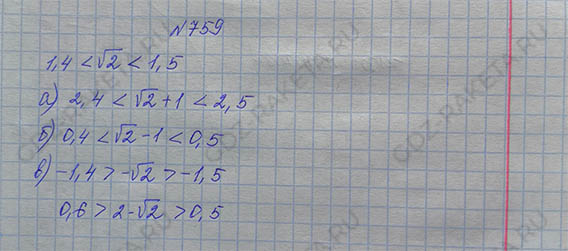 №759
1,4 < √2 < 1,5
а) 2,4 < √2 + 1 < 2,5
б) 0,4 < √2 - 1 < 0,5
в) -1,4 > -√2 > -1,5
0,6 > 2 - √2 > 0,5
GDZ-RAKETA.RU
GDZ-RAKETA.RU
GDZ-RAKETA.RU
GDZ-RAKETA.RU